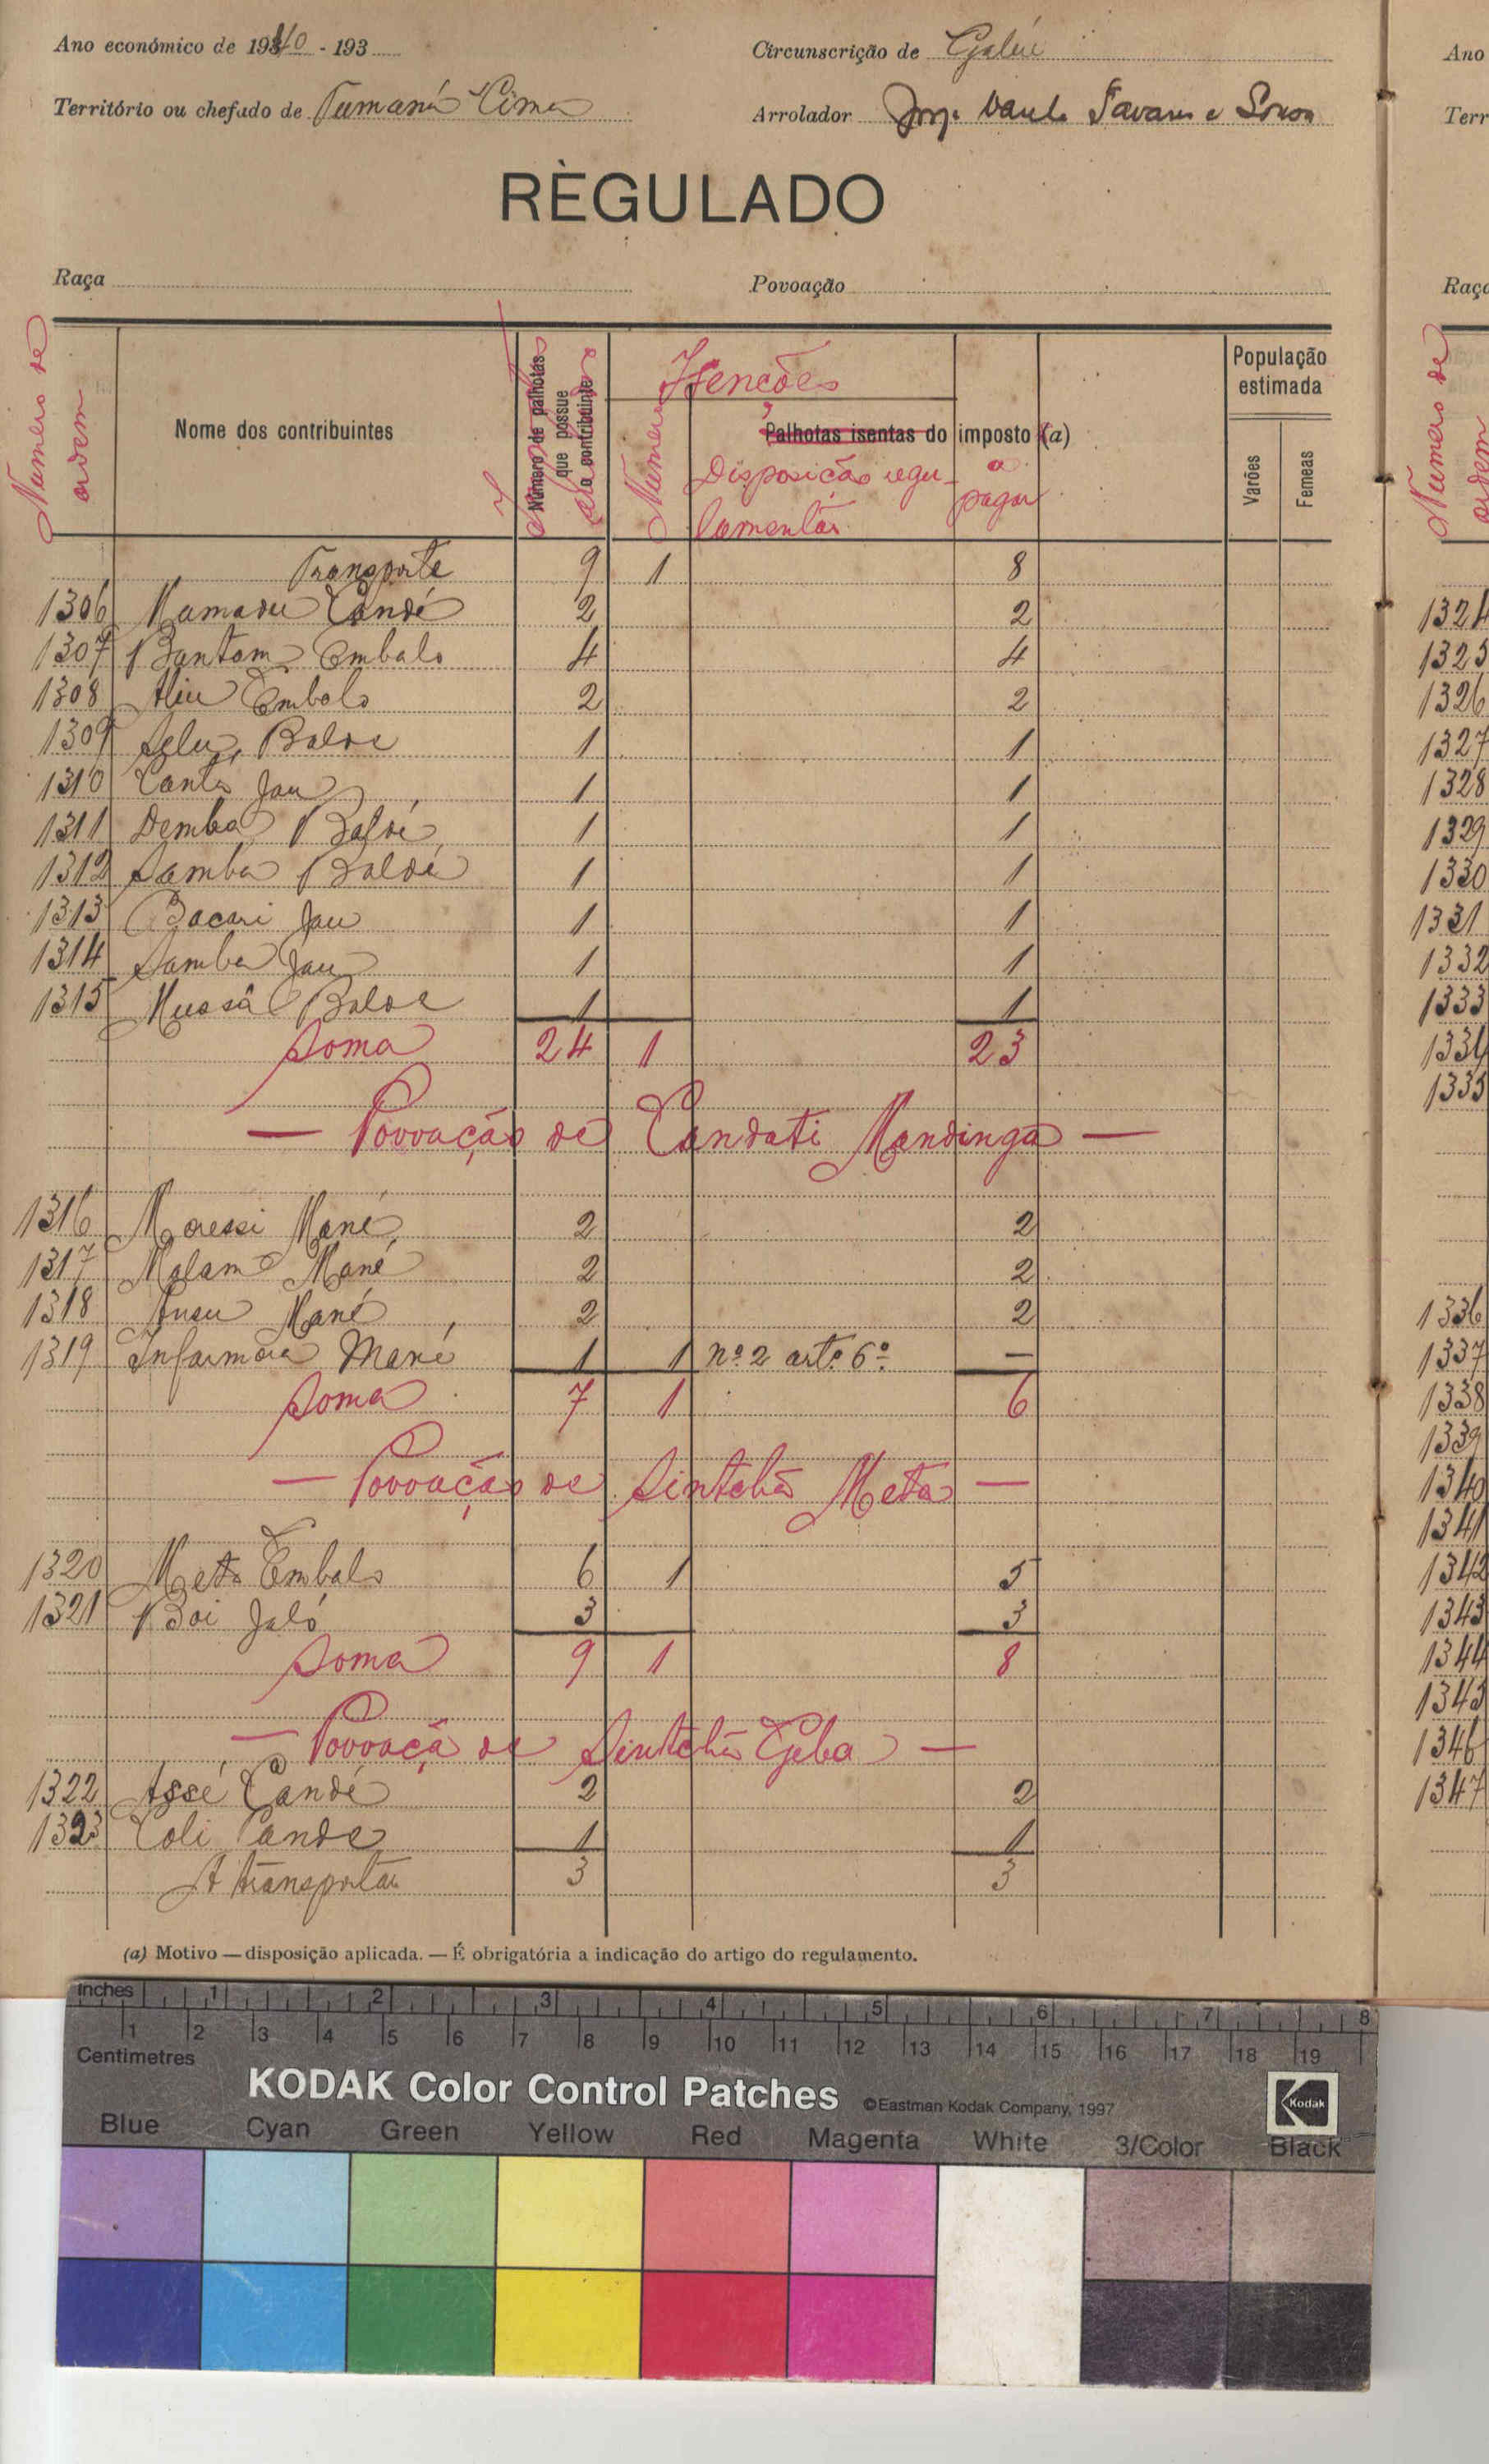 Ano económico de 1940 - 193
Circunscrição de Gabú
Território ou chefado de Tumaná Cima
Arrolador Jorge Paulo Tavares e Sousa
REGULADO
Raça
Povoação
Numero de ordem
Nome dos contribuintes
Número de palhotas que possue o contribuinte
Isenções
Numero
Palhotas isentas do imposto (a)
Disposição regulamentar
a pagar
População estimada
Varões
Femeas
Transporte 9 1 8
1306 Mamadu Candé 2 2
1307 Bantom Embalo 4 4
1308 Aliu Embalo 2 2
1309 Selu Balde 1 1
1310 Cantá Jau 1 1
1311 Demba Baldé 1 1
1312 Samba Baldé 1 1
1313 Bacari Jau 1 1
1314 Samba Jau 1 1
1315 Mussá Balde 1 1
Soma 24 1 23
— Povoação de Candati Mandinga —
1316 Moressi Mané 2 2
1317 Malam Mané 2 2
1318 Ansu Mané 2 2
1319 Infarmara Mané 1 1 nº 2 artº 6º —
Soma 7 1 6
— Povoação de Sintchã Meta —
1320 Meta Embalo 6 1 5
1321 Boi Jaló 3 3
Soma 9 1 8
— Povoaçã de Sintchã Geba —
1322 Assé Candé 2 2
1323 Coli Cande 1 1
A transportar 3 3
(a) Motivo — disposição aplicada. — É obrigatória a indicação do artigo do regulamento.
Ano
Terr
Raç
Numero de ordem
1324
1325
1326
1327
1328
1329
1330
1331
1332
1333
1334
1335
1336
1337
1338
1339
1340
1341
1342
1343
1344
1345
1346
1347
Inches 1 2 3 4 5 6 7 8
1 2 3 4 5 6 7 8 9 10 11 12 13 14 15 16 17 18 19
Centimetres
KODAK Color Control Patches ©Eastman Kodak Company, 1997
Kodak
Blue Cyan Green Yellow Red Magenta White 3/Color Black